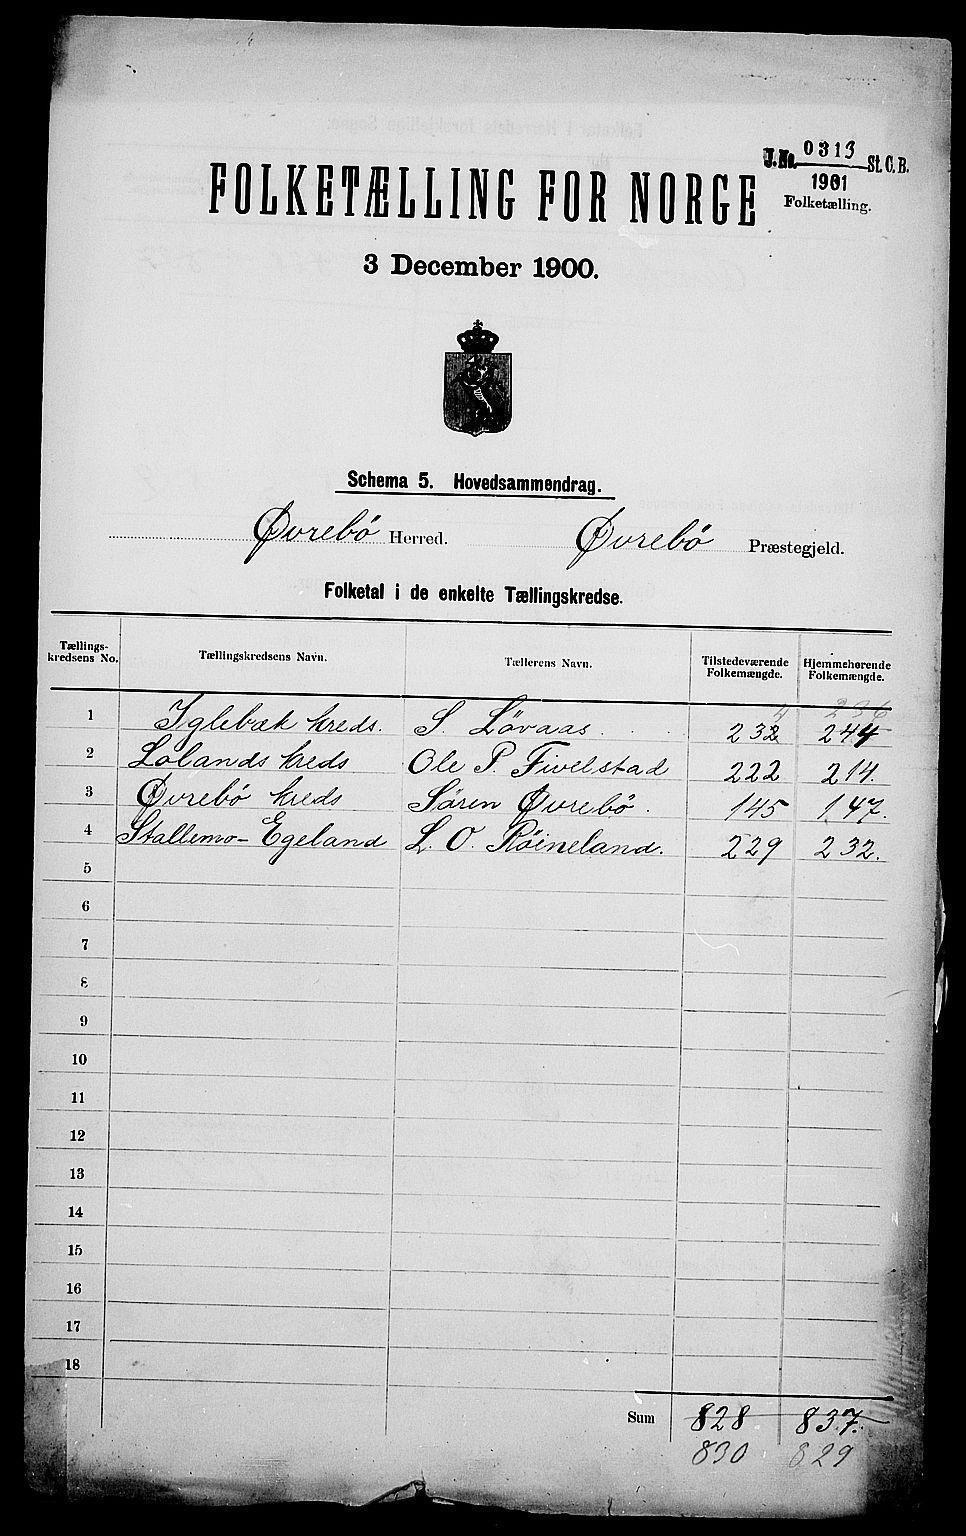 J.No. 0313 St.C.B.
1901
Folketælling.
FOLKETÆLLING FOR NORGE
3 December 1900.
Schema 5. Hovedsammendrag.
Øvrebø Herred. Øvrebø Præstegjeld.
Folketal i de enkelte Tællingskredse.
Tællings-kredsens No. Tællingskredsens Navn. Tællerens Navn. Tilstedeværende Folkemængde. Hjemmehørende Folkemængde.
4 236
1 Iglebæk kreds. S. Løvaas 232 244
2 Lølands kreds Ole P. Fivelstad 222 214.
3 Øvrebø kreds Søren Øvrebø. 145 147.
4 Stallemo-Egeland L. O. Røineland. 229 232.
5
6
7
8
9
10
11
12
13
14
15
16
17
18
Sum 828 837.
830 829